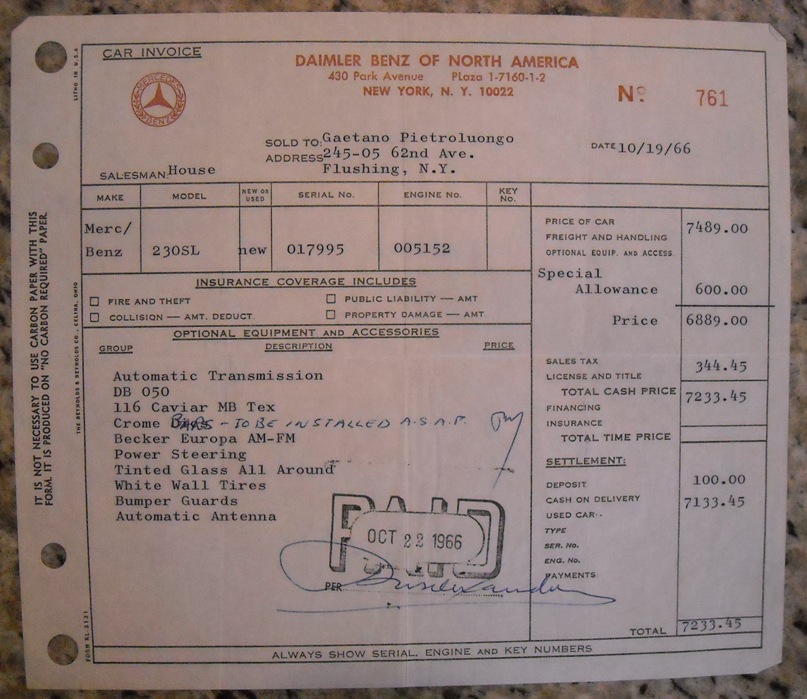 CAR INVOICE
DAIMLER BENZ OF NORTH AMERICA
430 Park Avenue PLaza 1-7160-1-2
NEW YORK, N. Y. 10022
MERCEDES
BENZ
Nº 761
SOLD TO: Gaetano Pietroluongo
ADDRESS 245-05 62nd Ave.
Flushing, N.Y.
DATE 10/19/66
SALESMAN: House
MAKE MODEL NEW OR USED SERIAL No. ENGINE No. KEY No.
Merc/
Benz 230SL new 017995 005152
PRICE OF CAR 7489.00
FREIGHT AND HANDLING
OPTIONAL EQUIP. AND ACCESS.
Special
Allowance 600.00
Price 6889.00
INSURANCE COVERAGE INCLUDES
FIRE AND THEFT PUBLIC LIABILITY — AMT
COLLISION — AMT. DEDUCT. PROPERTY DAMAGE — AMT
OPTIONAL EQUIPMENT AND ACCESSORIES
GROUP DESCRIPTION PRICE
Automatic Transmission
DB 050
116 Caviar MB Tex
Crome - TO BE INSTALLED A.S.A.P.
Becker Europa AM-FM
Power Steering
Tinted Glass All Around
White Wall Tires
Bumper Guards
Automatic Antenna
SALES TAX 344.45
LICENSE AND TITLE
TOTAL CASH PRICE 7233.45
FINANCING
INSURANCE
TOTAL TIME PRICE
SETTLEMENT:
DEPOSIT 100.00
CASH ON DELIVERY 7133.45
USED CAR-
TYPE
SER. No.
ENG. No.
PAYMENTS
TOTAL 7233.45
PAID
OCT 22 1966
PER
ALWAYS SHOW SERIAL, ENGINE AND KEY NUMBERS
IT IS NOT NECESSARY TO USE CARBON PAPER WITH THIS
FORM. IT IS PRODUCED ON "NO CARBON REQUIRED" PAPER.
LITHO IN U.S.A.
THE REYNOLDS & REYNOLDS CO., CELINA, OHIO